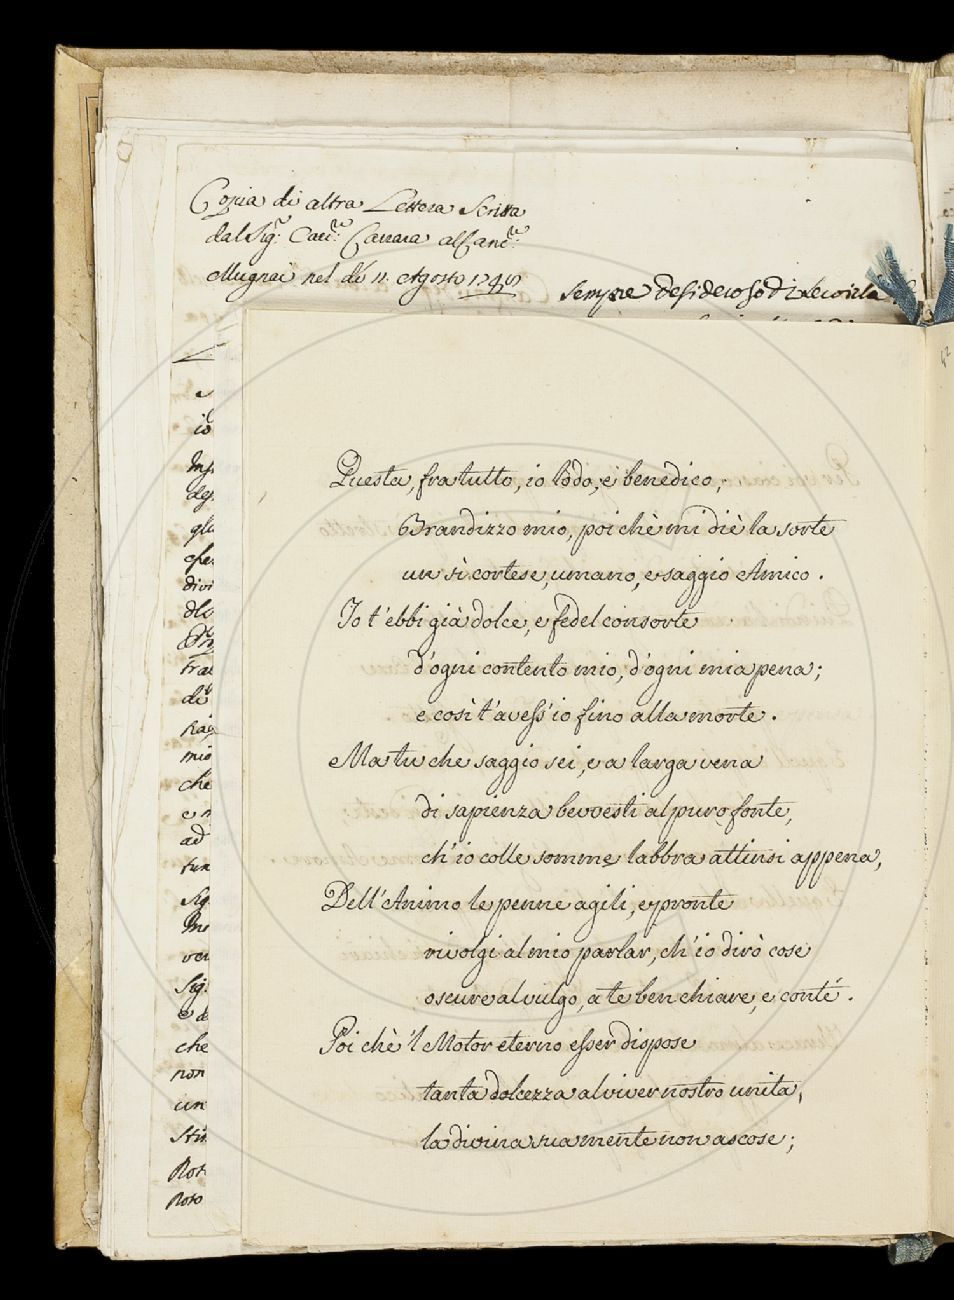 Copia di altra Lettera Scritta
dal Sigr. Carrara al
Mugnai nel dì 11. Agosto
sempre desideroso di
io
Imp
deg
glo
divi
fra
di
rag
mio
che
e n
ad
Sig.
e d
che
non
un
Sti
Rot
Roto
Questa, fra tutto, io lodo, e benedico,
Brandizzo mio, poi chè mi diè la sorte
un sì cortese, umano, e saggio Amico.
Io t'ebbi già dolce, e fedel consorte
d'ogni contento mio, d'ogni mia pena;
e così t'avess'io fino alla morte.
Ma tu che saggio sei, e a larga vena
di sapienza bevesti al puro fonte,
ch'io colle somme labbra attinsi appena,
Dell'Animo le penne agili, e pronte
rivolgi al mio parlar, ch'io dirò cose
oscure al vulgo, a te ben chiare, e conté.
Poi chè 'l Motor eterno esser dispose
tanta dolcezza al viver nostro unita,
la divina sua mente non ascose;
42